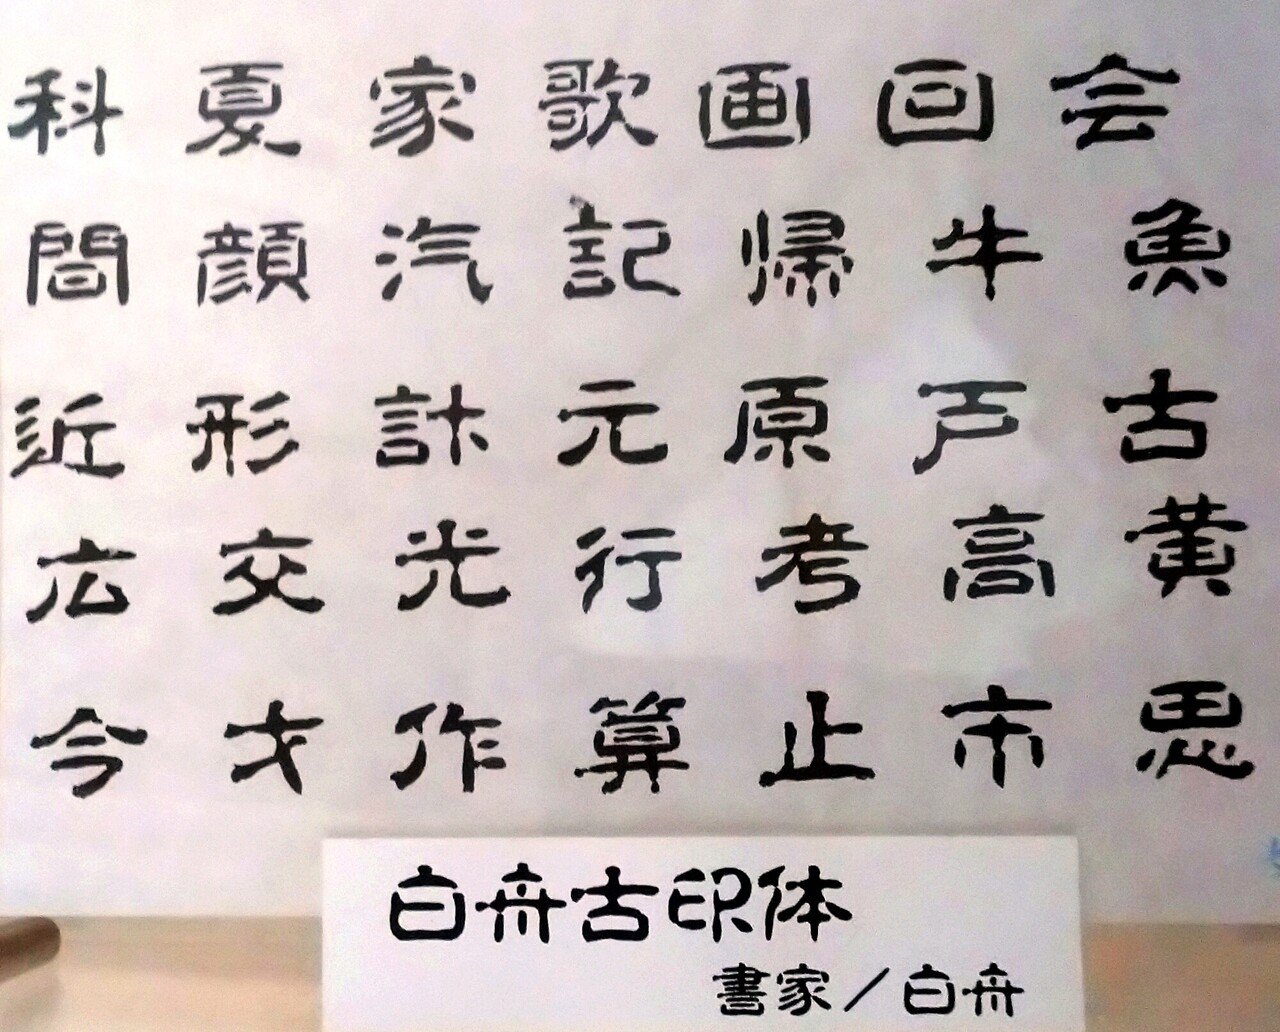 科夏家歌画回会
間顔汽記帰牛魚
近形計元原戸古
広交光行考高黄
今才作算止市思
白舟古印体
書家／白舟